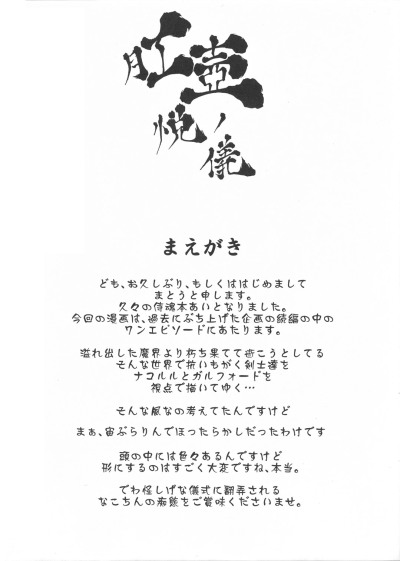 肛壺
悦ノ儀
まえがき
ども、お久しぶり、もしくははじめまして
まとうと申します。
久々の侍魂本あいとなりました。
今回の漫画は、過去にぶち上げた企画の続編の中の
ワンエピソードにあたります。
溢れ出した魔界より朽ち果てて逝こうとしてる
そんな世界で抗いもがく剣士達を
ナコルルとガルフォードを
視点で描いてゆく…
そんな風なの考えてたんですけど
まぁ、宙ぶらりんでほったらかしだったわけです
頭の中には色々あるんですけど
形にするのはすごく大変ですね、本当。
でわ怪しげな儀式に翻弄される
なこちんの痴態をご賞味くださいませ。